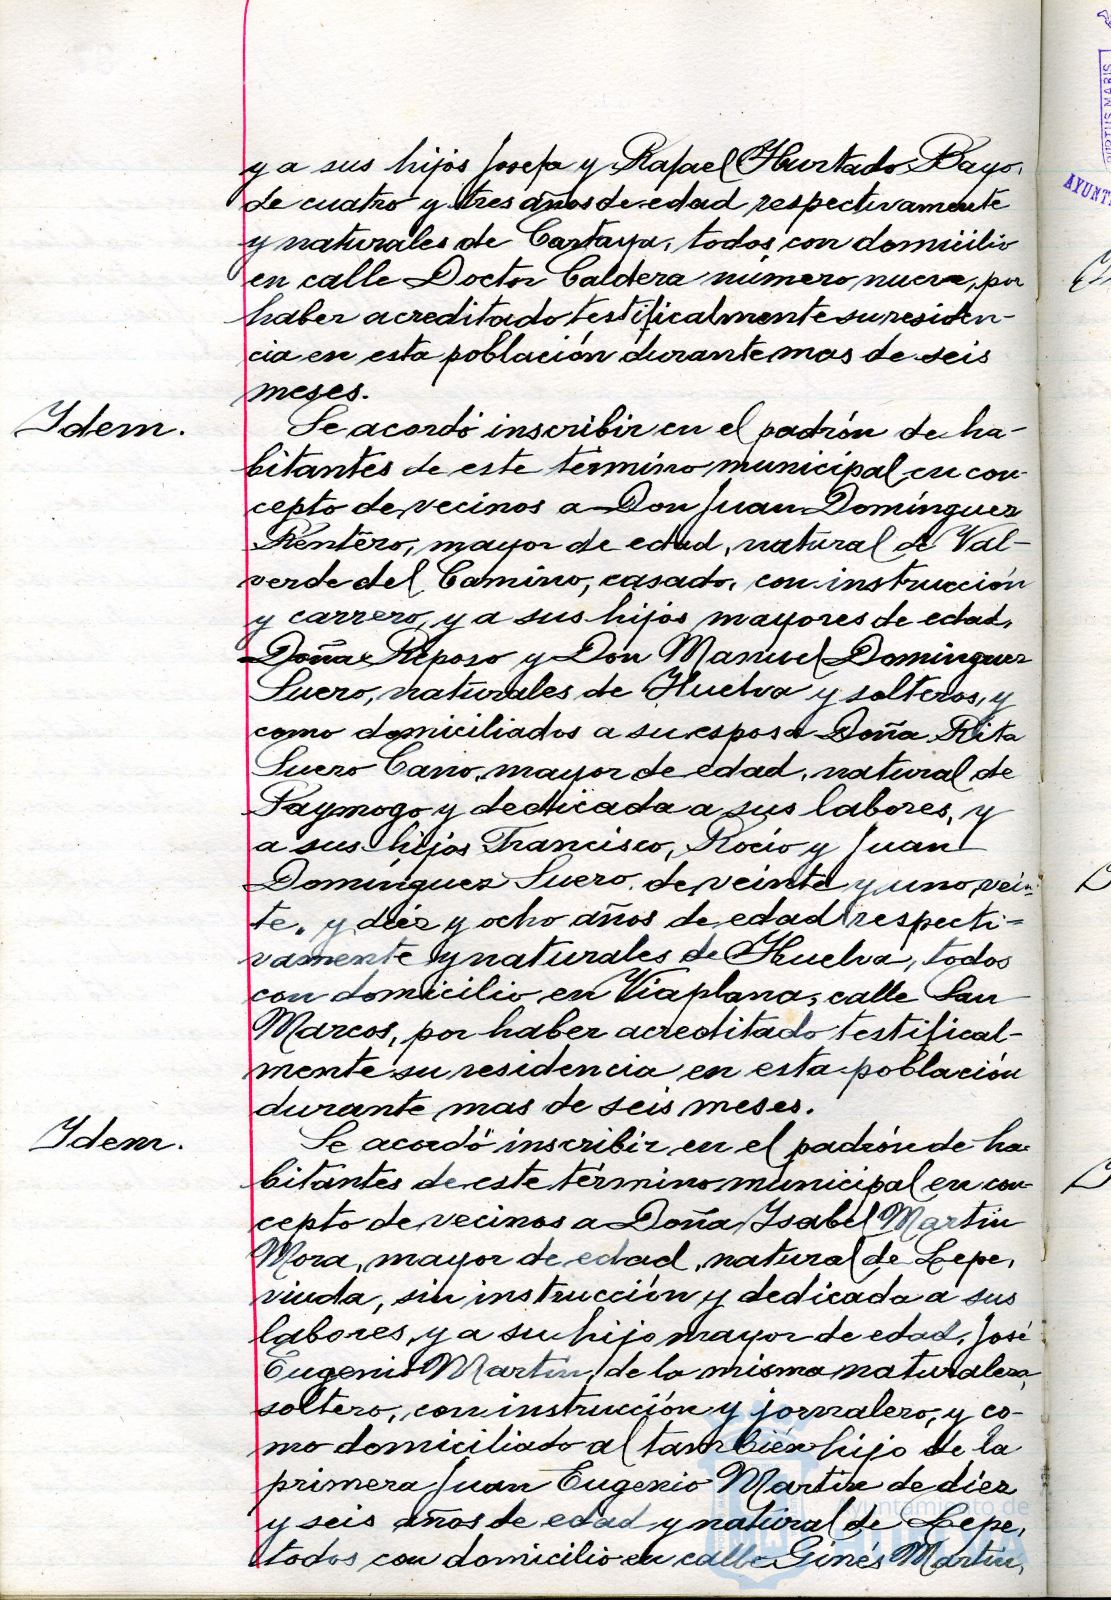 y a sus hijos Josefa y Rafael Hurtado Bayo,
de cuatro y tres años de edad respectivamente
y naturales de Cartaya, todos con domicilio
en calle Doctor Caldera número nueve, por
haber acreditado testificalmente su residen-
cia en esta población durante mas de seis
meses.
Idem.
Se acordó inscribir en el padrón de ha-
bitantes de este término municipal en con-
cepto de vecinos a Don Juan Domínguez
Rentero, mayor de edad, natural de Val-
verde del Camino, casado, con instrucción
y carrero, y a sus hijos mayores de edad,
Doña Reposo y Don Manuel Domínguez
Suero, naturales de Huelva y solteros, y
como domiciliados a su esposa Doña Rita
Suero Cano, mayor de edad, natural de
Paymogo y dedicada a sus labores, y
a sus hijos Francisco, Rocío y Juan
Domínguez Suero, de veinte y uno, vein-
te, y diez y ocho años de edad respecti-
vamente y naturales de Huelva, todos
con domicilio en Viaplana, calle San
Marcos, por haber acreditado testifical-
mente su residencia en esta población
durante mas de seis meses.
Idem.
Se acordó inscribir en el padrón de ha-
bitantes de este término municipal en con-
cepto de vecinos a Doña Isabel Martín
Mora, mayor de edad, natural de Lepe,
viuda, sin instrucción y dedicada a sus
labores, y a su hijo mayor de edad, José
Eugenio Martín, de la misma naturaleza,
soltero, con instrucción y jornalero, y co-
mo domiciliado al también hijo de la
primera Juan Eugenio Martín de diez
y seis años de edad y natural de Lepe,
todos con domicilio en calle Ginés Martín,
Ayuntamiento de
HUELVA
AYUNT